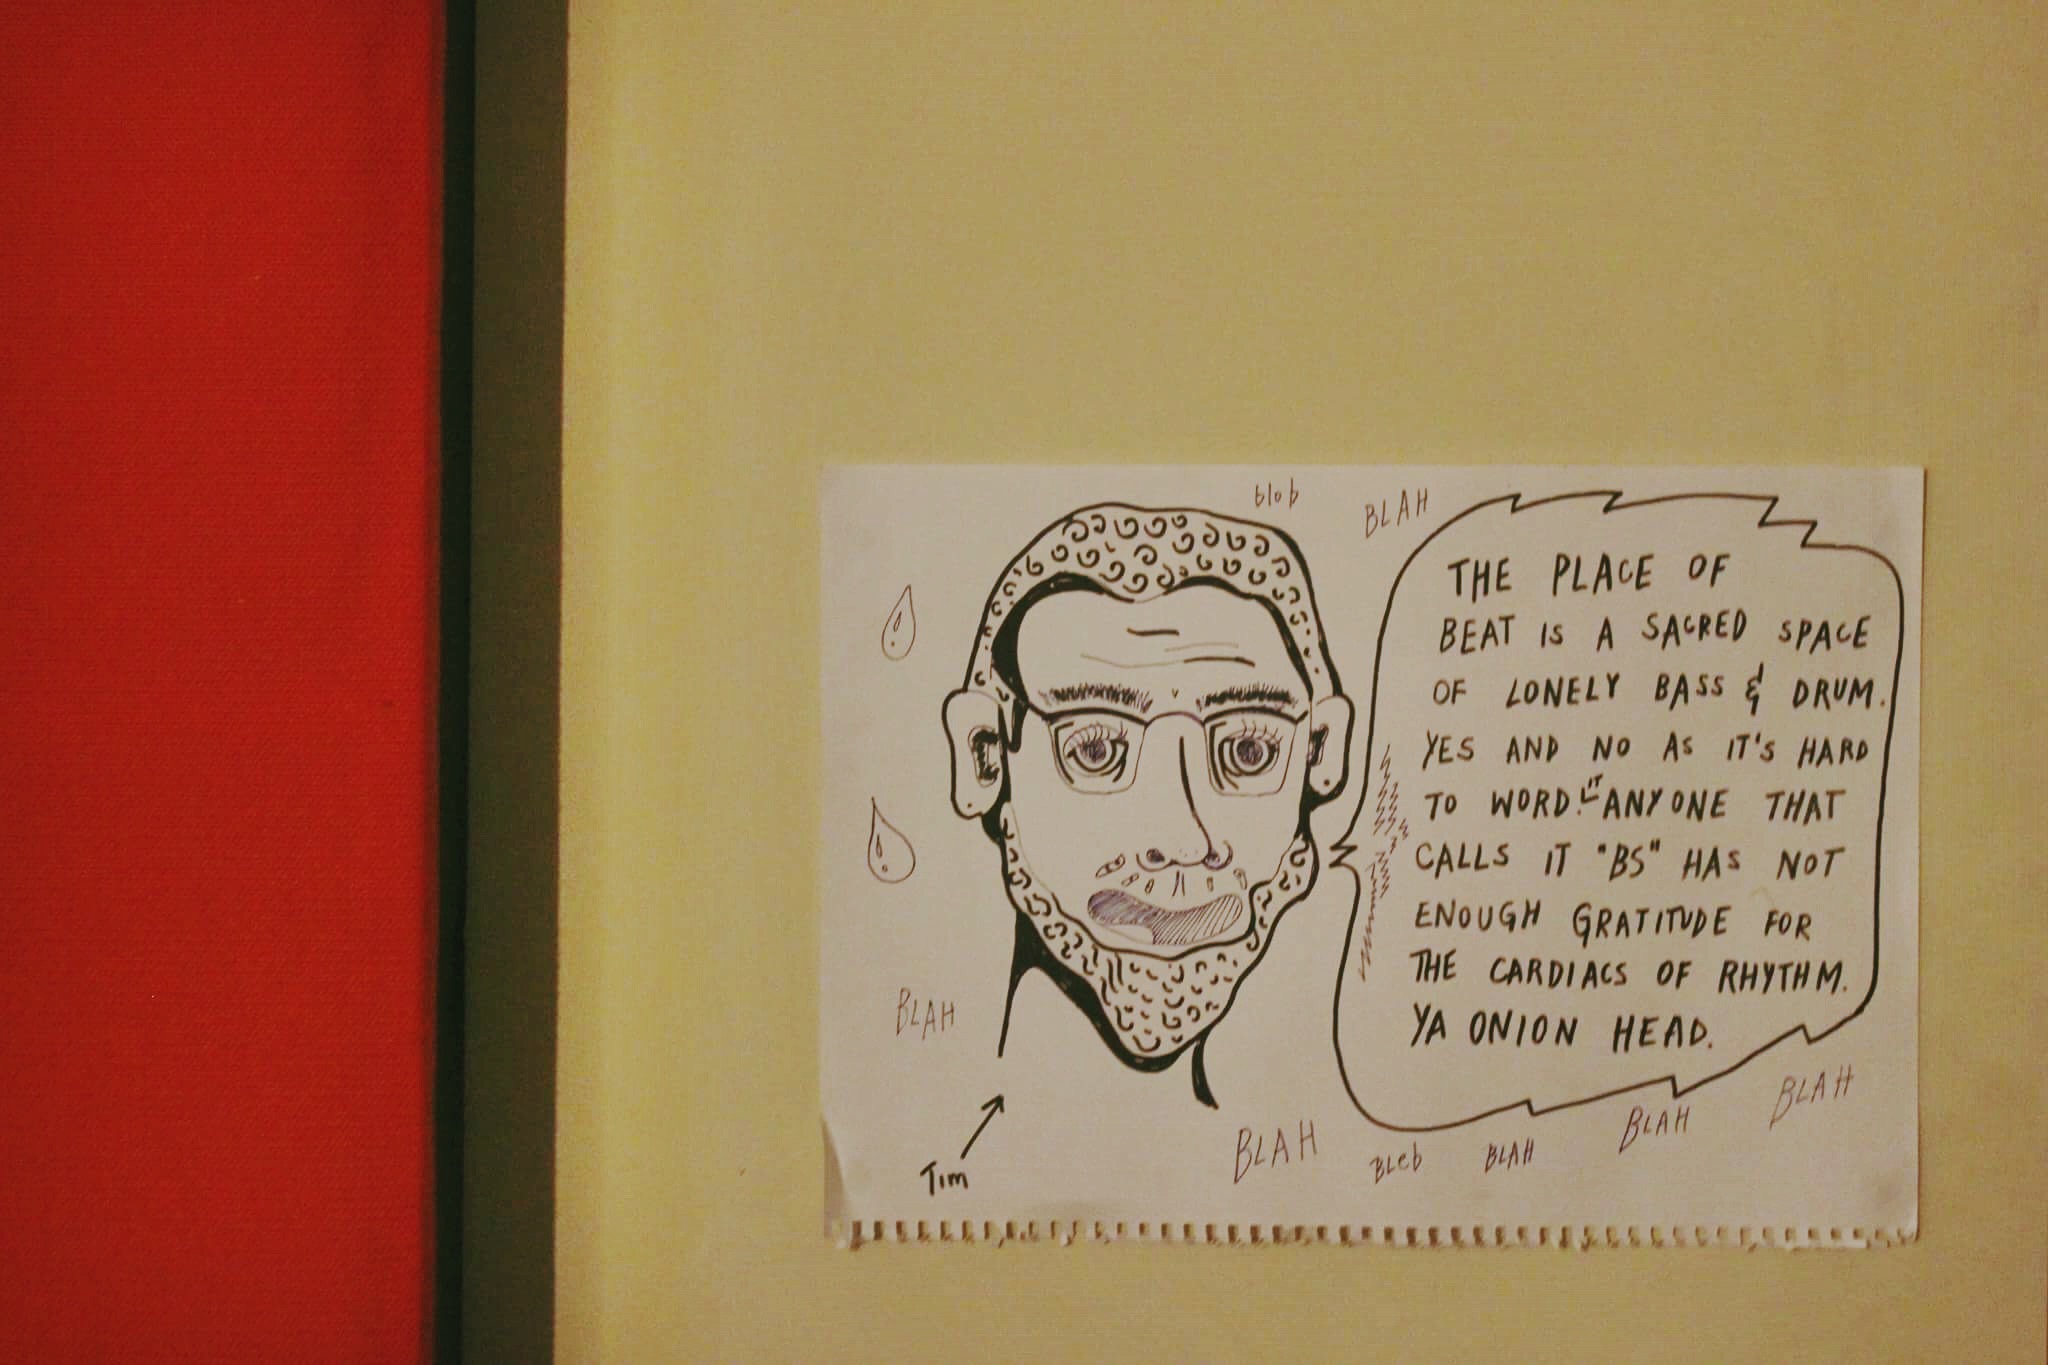 blob
BLAH
THE PLACE OF
BEAT IS A SACRED SPACE
OF LONELY BASS & DRUM.
YES AND NO AS IT'S HARD
TO WORD IT. ANYONE THAT
CALLS IT "BS" HAS NOT
ENOUGH GRATITUDE FOR
THE CARDIACS OF RHYTHM.
YA ONION HEAD.
BLAH
Tim
BLAH
BLeb
BLAH
BLAH
BLAH